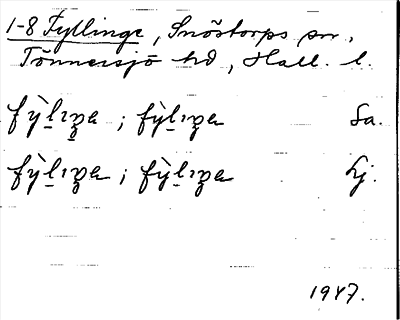 1-8 Fyllinge, Snöstorps sn,
Tönnersjö hd, Hall. l.
fỳlıŋa ; fỳlıŋa Sa.
fỳlıŋa ; fỳlıŋa Lj.
1947.